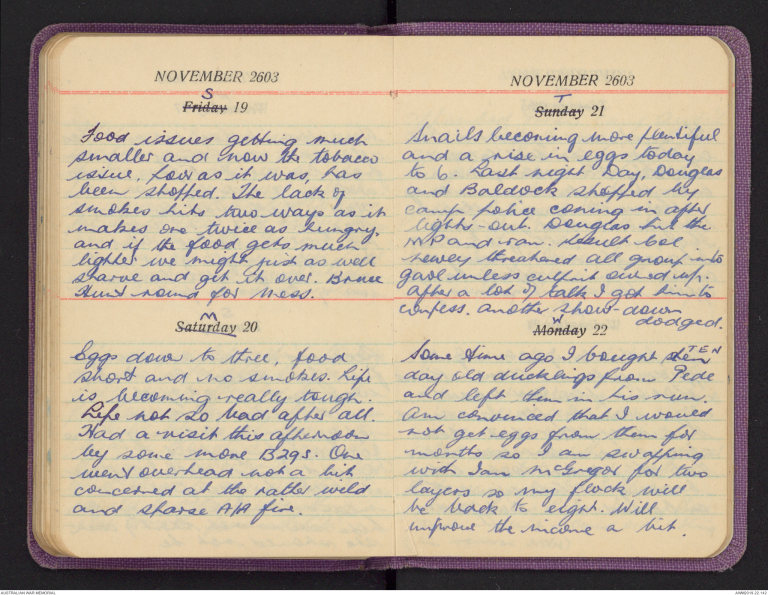 NOVEMBER 2603
S
Friday 19
Food issues getting much
smaller and now the tobacco
issue, poor as it was, has
been stopped. The lack of
smokes hits two ways as it
makes one twice as hungry,
and if the food gets much
lighter we might just as well
starve and get it over. Bruce
Hunt round for mess.
M
Saturday 20
Eggs down to three, food
short and no smokes. Life
is becoming really tough.
Life not so bad after all.
Had a visit this afternoon
by some more B29s. One
went overhead not a bit
concerned at the rather wild
and sparse A/A fire.
NOVEMBER 2603
T
Sunday 21
Snails becoming more plentiful
and a rise in eggs today
to 6. Last night Day, Douglas
and Baldock stopped by
camp police coming in after
lights-out. Douglas hit the
MP and ran. Result Col
Newey threatened all group into
gaol unless culprit owned up.
After a lot of talk I got him to
confess. Another show-down
dodged.
W
Monday 22
Some time ago I bought ten TEN
day old ducklings from Pede
and left them in his run.
Am convinced that I would
not get eggs from them for
months so I am swapping
with Ian McGregor for two
layers so my flock will
be back to eight. Will
improve the income a bit.
AUSTRALIAN WAR MEMORIAL